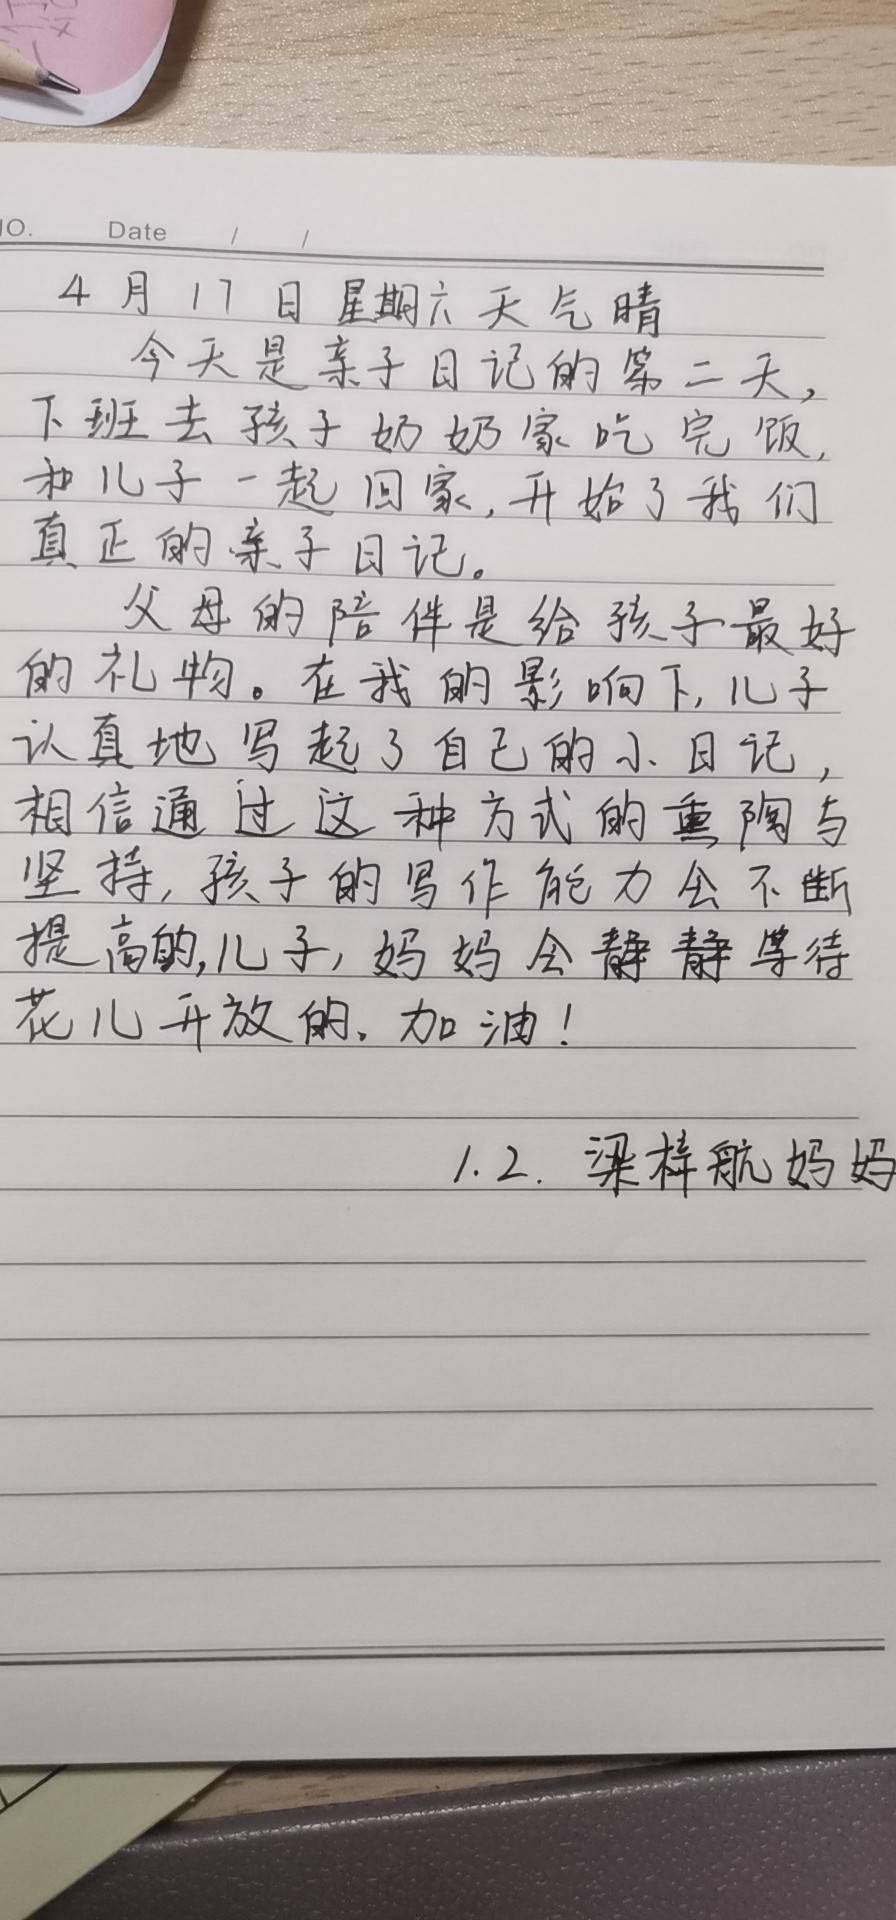 NO. Date / /
4月17日星期六天气晴
今天是亲子日记的第二天,
下班去孩子奶奶家吃完饭,
和儿子一起回家,开始了我们
真正的亲子日记。
父母的陪伴是给孩子最好
的礼物。在我的影响下,儿子
认真地写起了自己的小日记,
相信通过这种方式的熏陶与
坚持,孩子的写作能力会不断
提高的,儿子,妈妈会静静等待
花儿开放的。加油!
1.2. 梁梓航妈妈